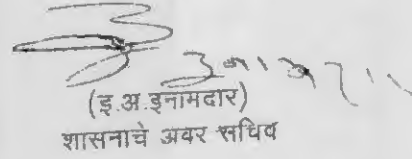 (इ.अ.इनामदार)
शासनाचे अवर सचिव